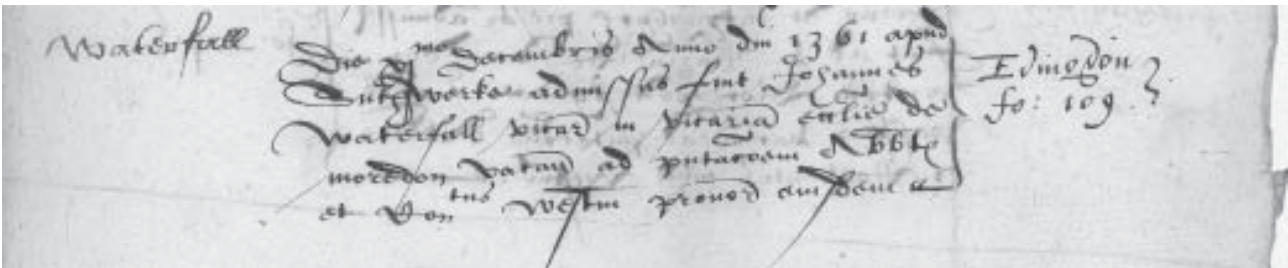 Waterfall
Die xjmo decembris Anno dni 1361 apud
Suthwerke admissus fuit Johannes
Waterfall vicar in vicaria ecclie de
moredon vacan ad pntacoem Abbtis
et Contus Westm eiusdem
Edingdon
fo: 109.